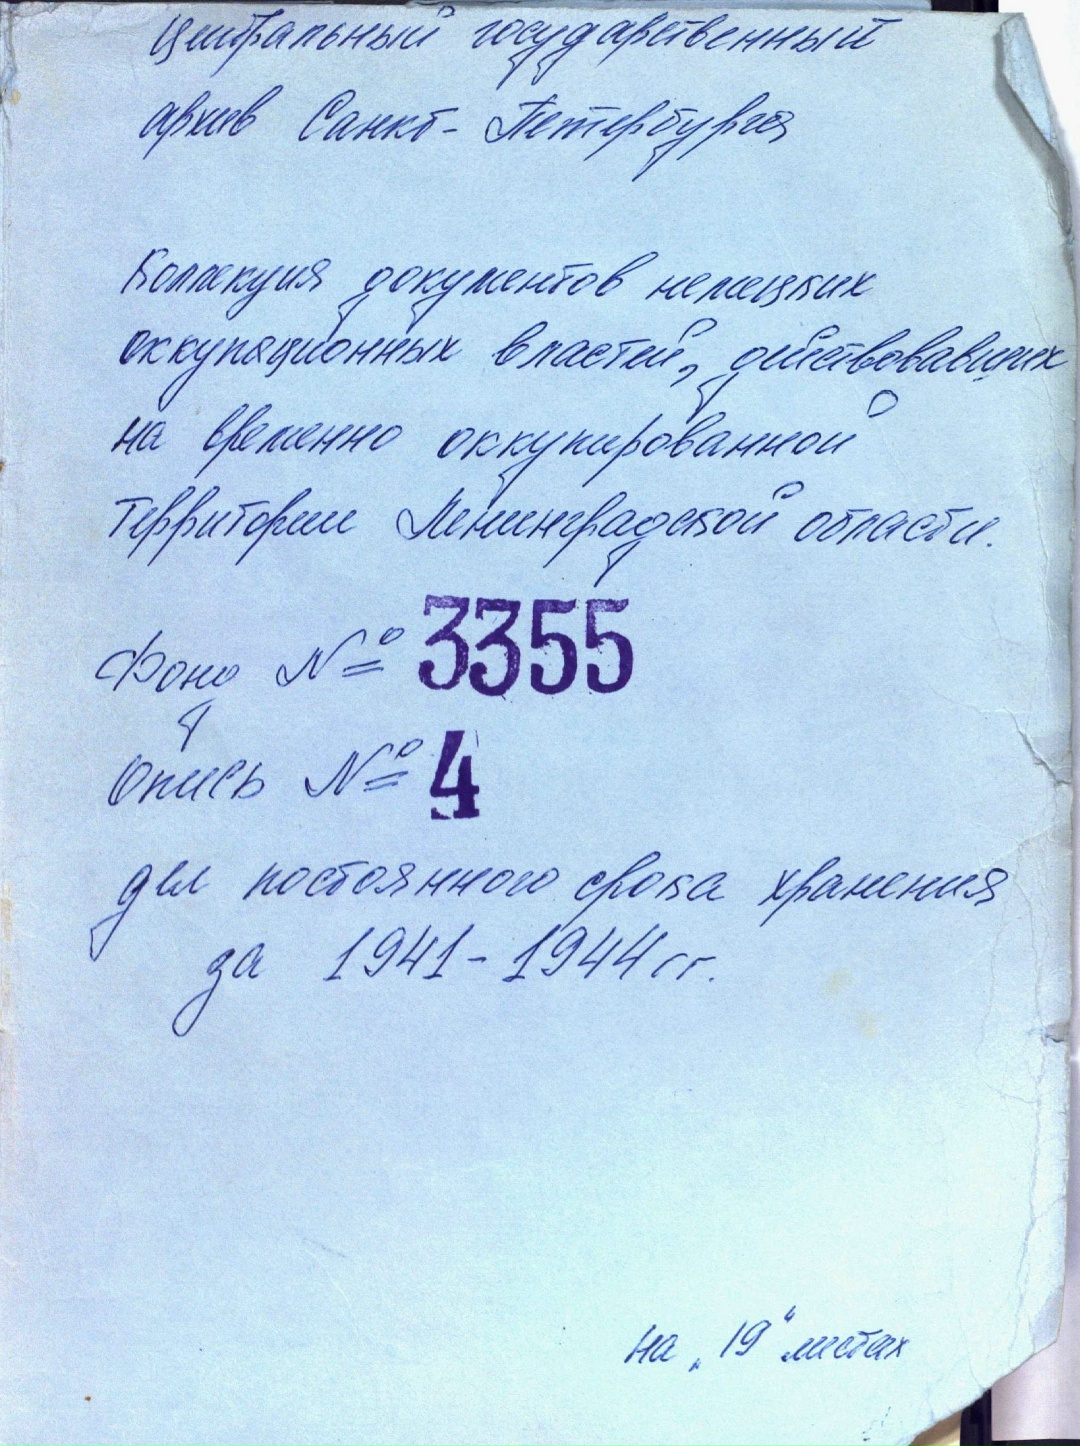 Центральный государственный
архив Санкт-Петербурга
Коллекция документов немецких
оккупационных властей, действовавших
на временно оккупированной
территории Ленинградской области.
Фонд № 3355
Опись № 4
дел постоянного срока хранения
за 1941-1944 гг.
на „19“ листах